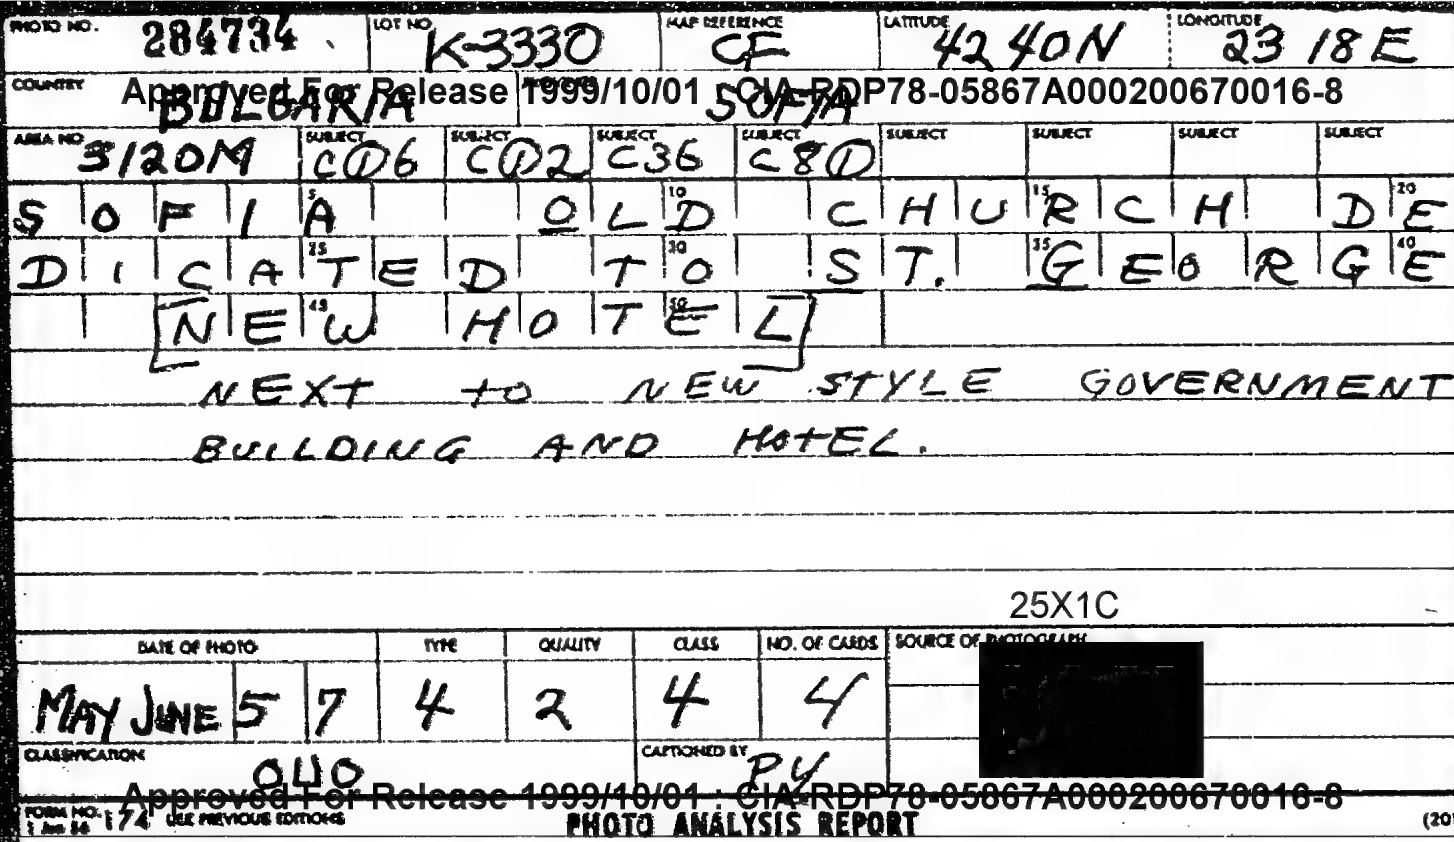 PHOTO NO. 284734 LOT NO. K-3330 MAP REFERENCE CF LATITUDE 42 40N LONGITUDE 23 18 E
COUNTRY BULGARIA SOFIA
Approved For Release 1999/10/01 : CIA-RDP78-05867A000200670016-8
AREA NO. 3120M SUBJECT C06 SUBJECT C02 SUBJECT C36 SUBJECT C80 SUBJECT SUBJECT SUBJECT SUBJECT
5 10 15 20
SOFIA OLD CHURCH DE
25 30 35 40
DICATED TO ST. GEORGE
45 50
[NEW HOTEL]
NEXT TO NEW STYLE GOVERNMENT
BUILDING AND HOTEL.
25X1C
DATE OF PHOTO TYPE QUALITY CLASS NO. OF CARDS SOURCE OF PHOTOGRAPH
MAY JUNE 57 4 2 4 4
CLASSIFICATION OUO CAPTIONED BY PY
Approved For Release 1999/10/01 : CIA-RDP78-05867A000200670016-8
FORM NO. 174 USE PREVIOUS EDITIONS PHOTO ANALYSIS REPORT (20
1 Jun 56